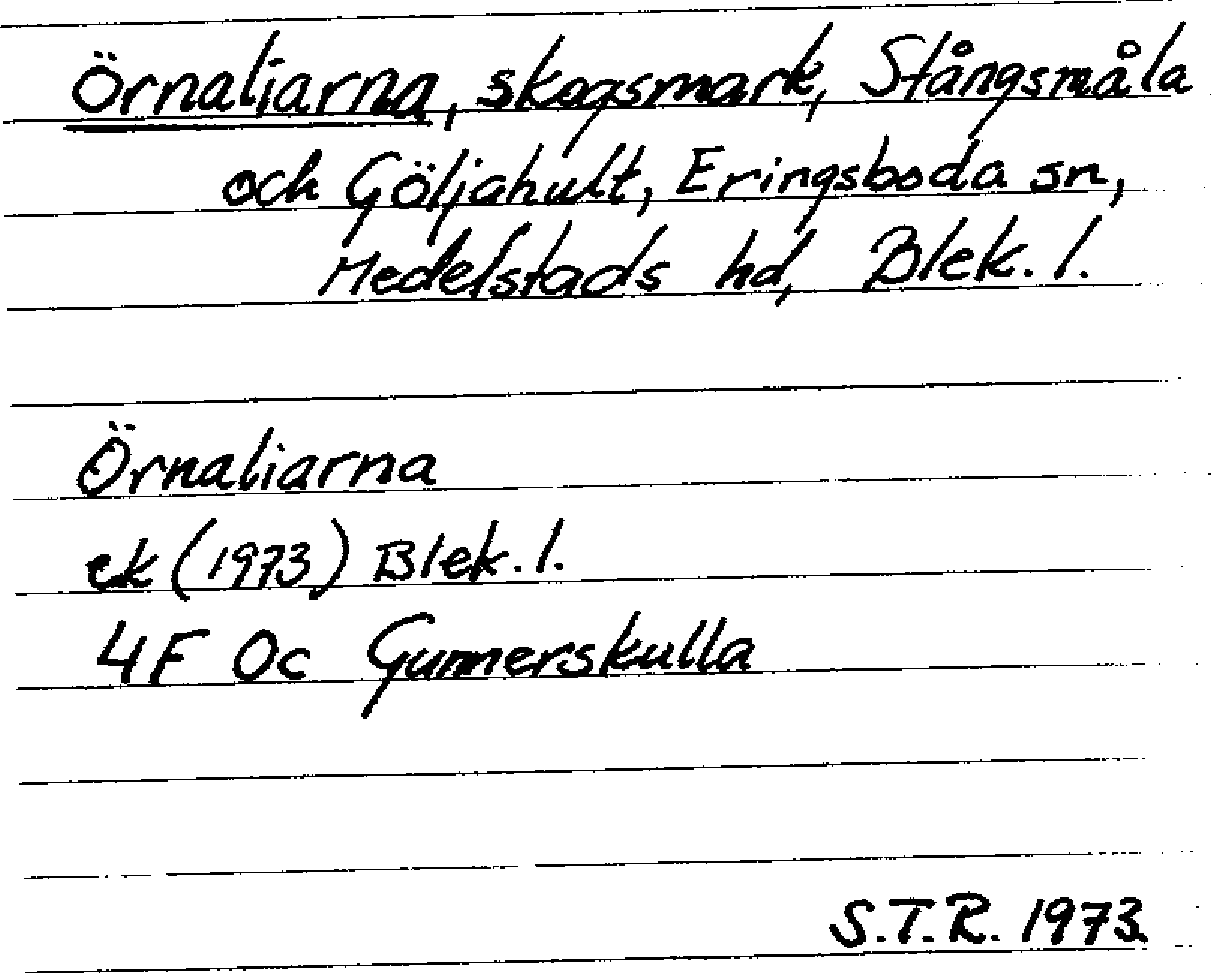 Örnaliarna, skogsmark, Stångsmåla
och Göljahult, Eringsboda sn,
Medelstads hd, Blek. l.
Örnaliarna
ek (1973) Blek. l.
4F 0c Gunnerskulla
S.T.R. 1973